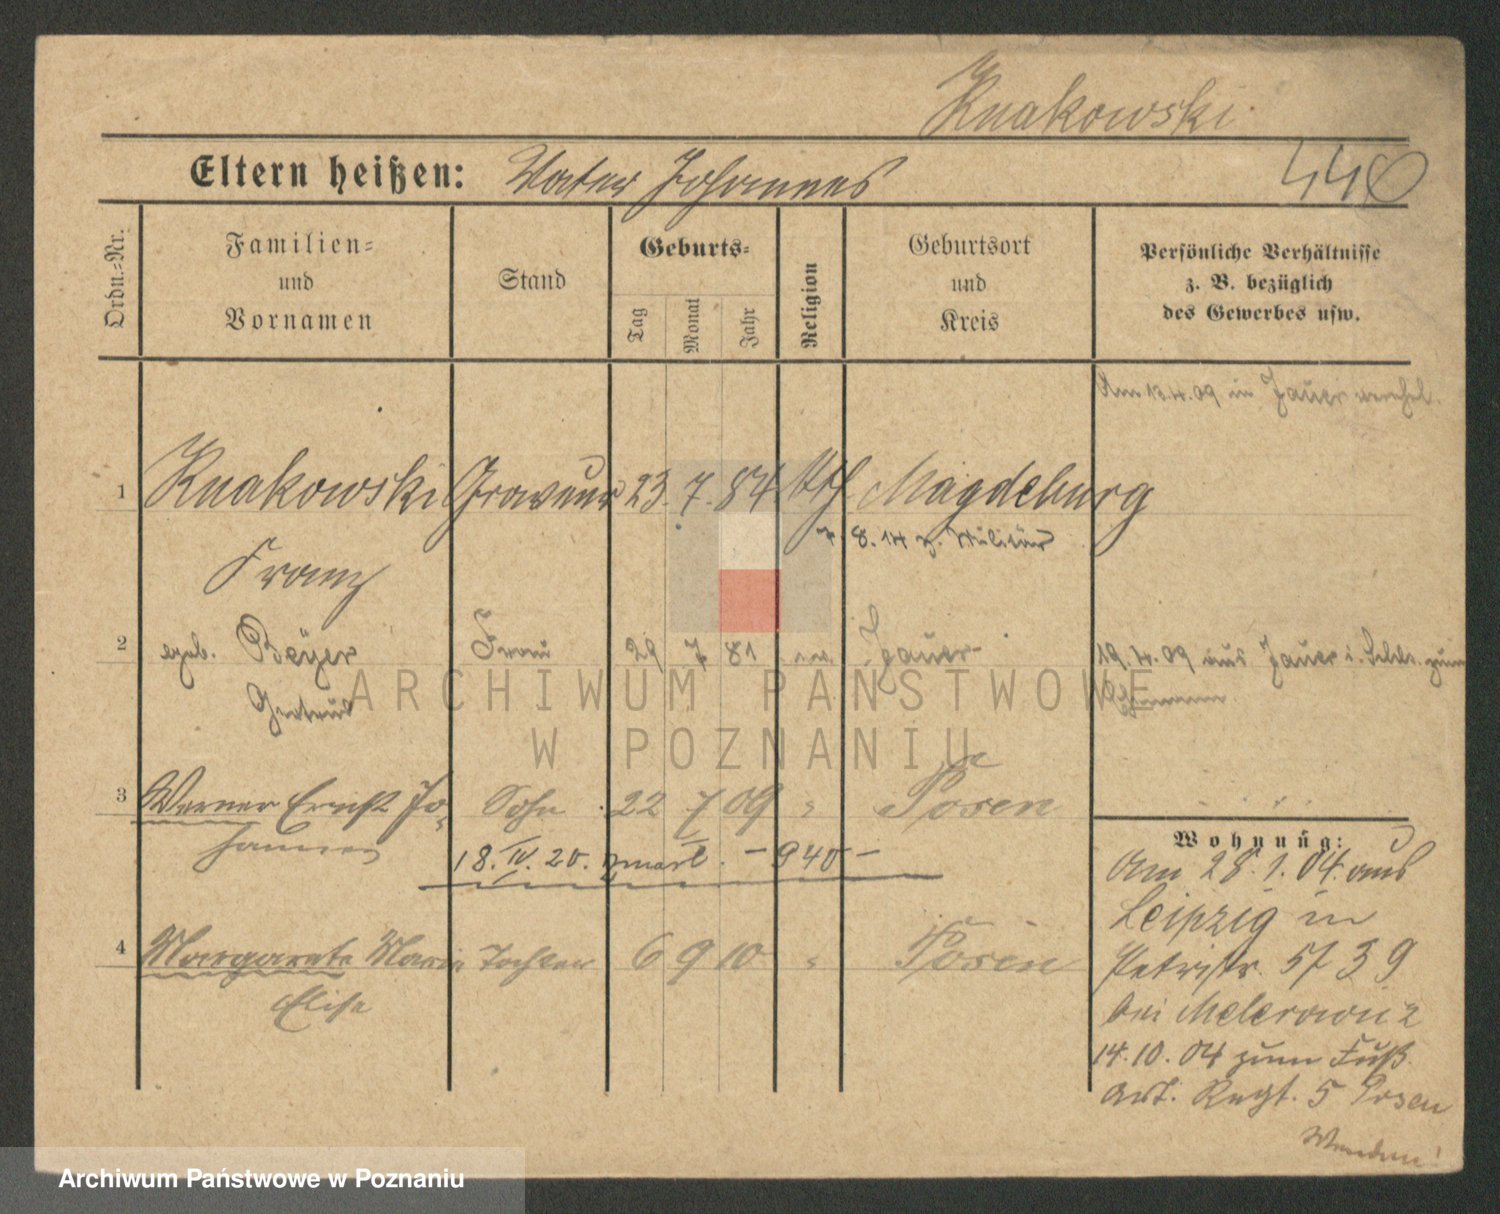 Knakowski.
440
Eltern heißen: Vater Johannes
Ordn.=Nr.
Familien=
und
Vornamen
Stand
Geburts=
Tag
Monat
Jahr
Religion
Geburtsort
und
Kreis
Persönliche Verhältnisse
z. B. bezüglich
des Gewerbes usw.
Am 13.4.09 in Jauer verehel.
1 Knakowski Graveur 23. 7. 84 Kth Magdeburg
7. 8. 14 z. Militär
Franz
2 geb. Beyer Frau 29 7 81 ev. Jauer
19. 4. 09 aus Jauer i. Schles. zum
Ehemann
Gertrud
3 Werner Ernst Jo= Sohn 22 7 09 " Posen
hannes
18. IV. 20. - 940 -
4 Margarete Marie Tochter 6 9 10 " Posen
Elise
Wohnung:
Am 28. 1. 04. aus
Leipzig in
Petristr. 5
bei
14. 10. 04 zum Fuß
Art. Regt. 5 Posen
Wenden!
ARCHIWUM PAŃSTWOWE
W POZNANIU
Archiwum Państwowe w Poznaniu